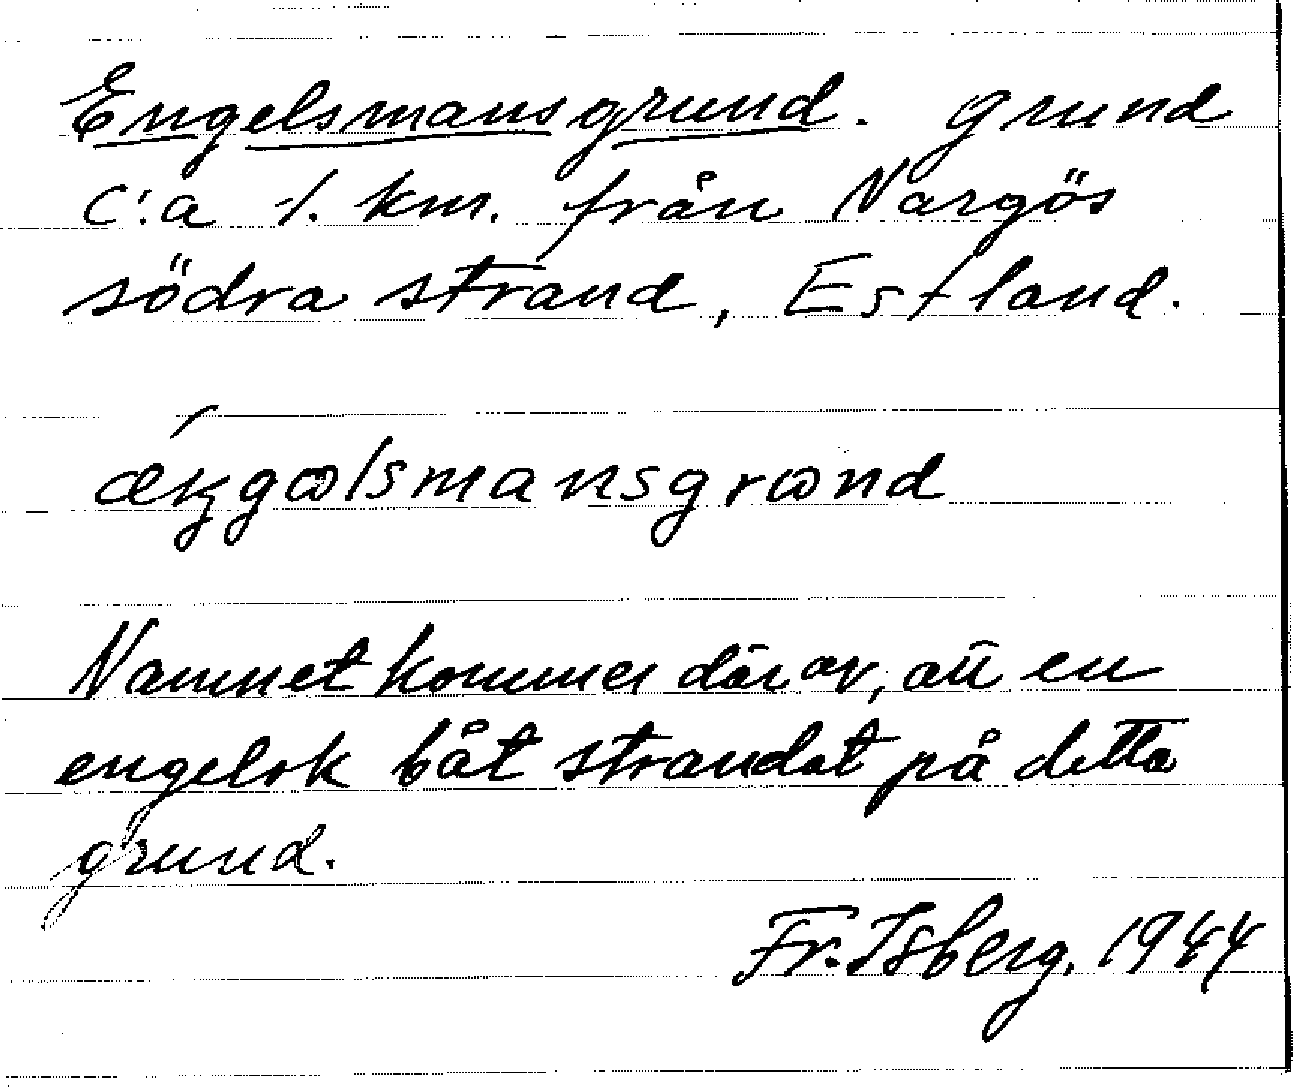 Engelsmansgrund. grund
c:a 1. km. från Nargös
södra strand, Estland.
ǽŋgɷlsmansgrɷnd
Namnet kommer därav, att en
engelsk båt strandat på detta
grund.
Fr. Isberg, 1944